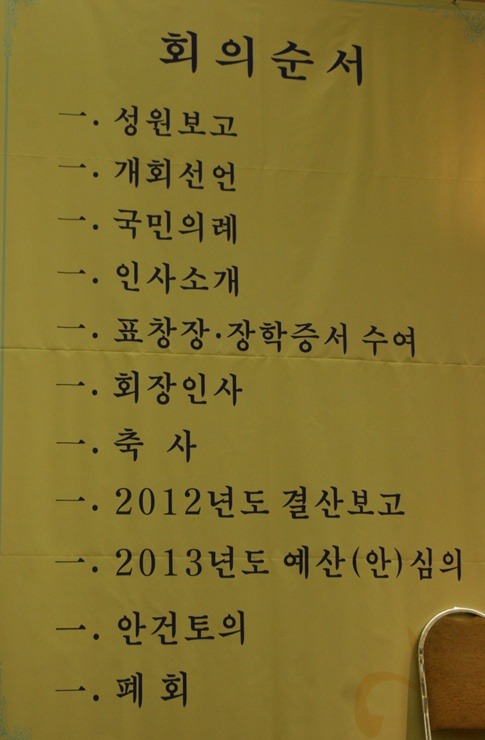 회의순서
一. 성원보고
一. 개회선언
一. 국민의례
一. 인사소개
一. 표창장·장학증서 수여
一. 회장인사
一. 축 사
一. 2012년도 결산보고
一. 2013년도 예산(안)심의
一. 안건토의
一. 폐 회